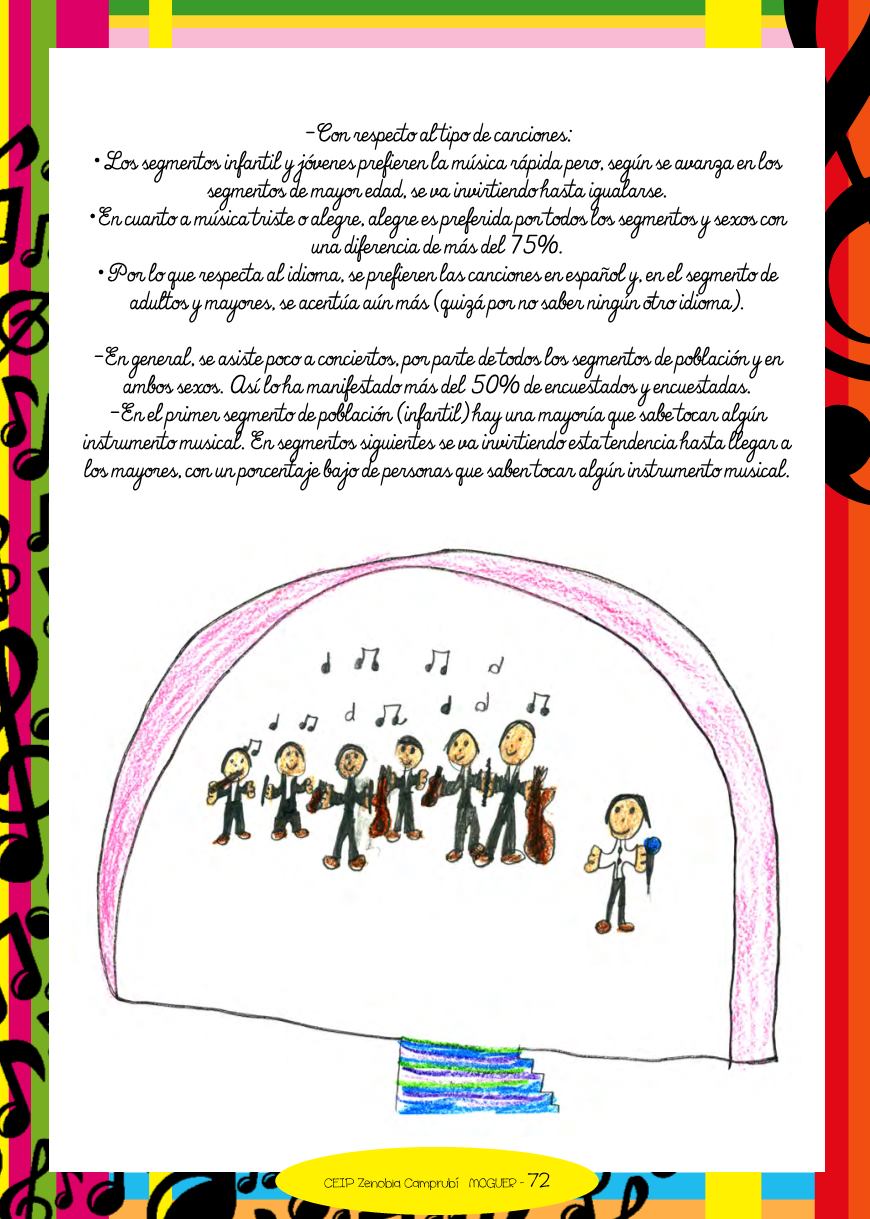 -Con respecto al tipo de canciones:
• Los segmentos infantil y jóvenes prefieren la música rápida pero, según se avanza en los
segmentos de mayor edad, se va invirtiendo hasta igualarse.
• En cuanto a música triste o alegre, alegre es preferida por todos los segmentos y sexos con
una diferencia de más del 75%.
• Por lo que respecta al idioma, se prefieren las canciones en español y, en el segmento de
adultos y mayores, se acentúa aún más (quizá por no saber ningún otro idioma).
-En general, se asiste poco a conciertos, por parte de todos los segmentos de población y en
ambos sexos. Así lo ha manifestado más del 50% de encuestados y encuestadas.
-En el primer segmento de población (infantil) hay una mayoría que sabe tocar algún
instrumento musical. En segmentos siguientes se va invirtiendo esta tendencia hasta llegar a
los mayores, con un porcentaje bajo de personas que saben tocar algún instrumento musical.
CEIP Zenobia Camprubí MOGUER - 72